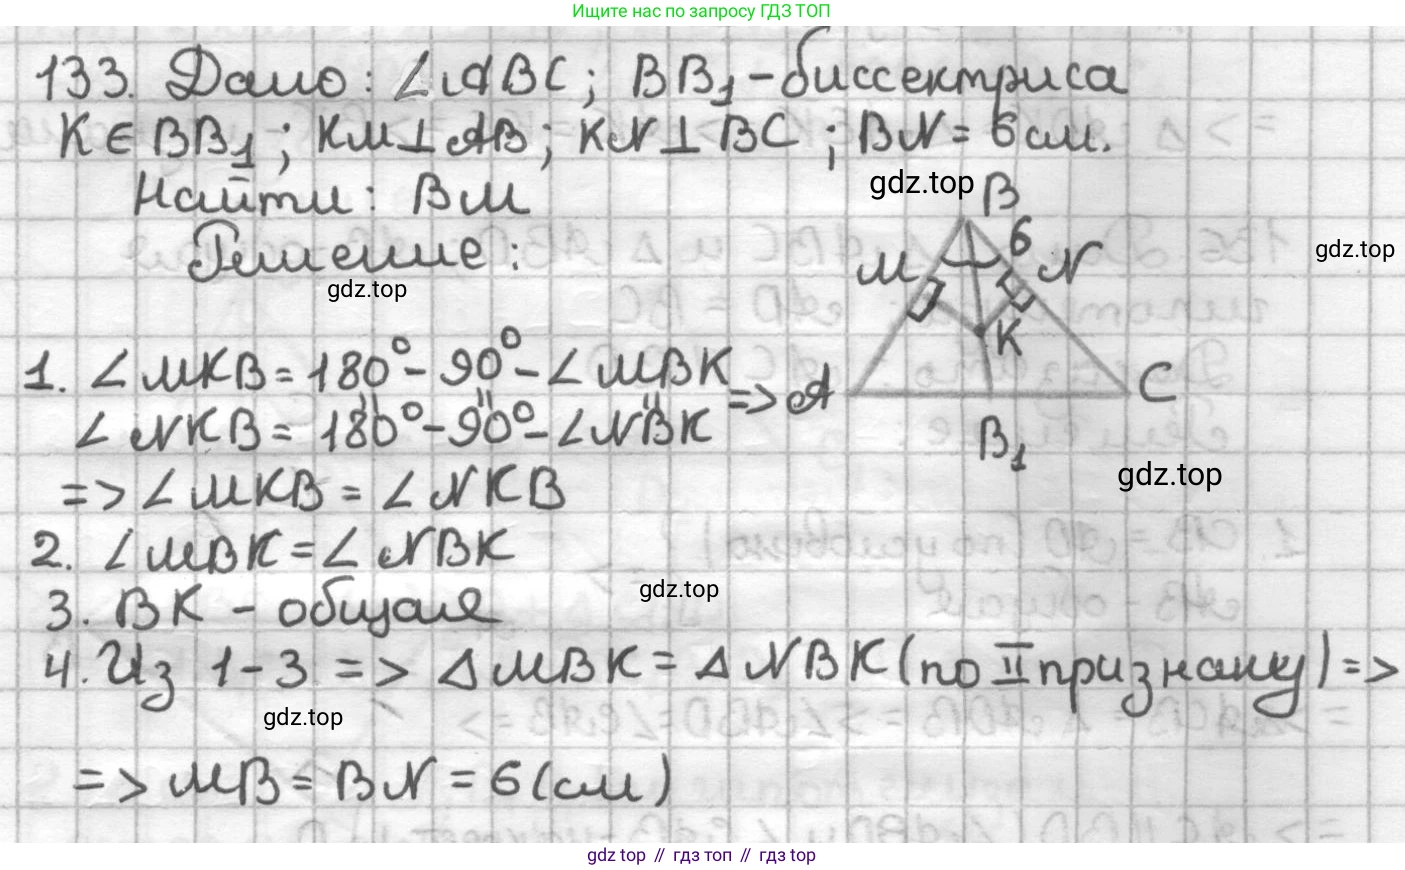 Ищите нас по запросу ГДЗ ТОП
133. Дано: ∠ABC; BB₁-биссектриса
K∈BB₁; KM⊥AB; KN⊥BC; BN=6см.
Найти: BM
gdz.top
B
Решение:
6
M
N
gdz.top
gdz.top
K
1. ∠MKB=180°-90°-∠MBK
∠NKB=180°-90°-∠NBK
=>
A
C
B₁
=>∠MKB=∠NKB
gdz.top
2. ∠MBK=∠NBK
3. BK - общая
gdz.top
4. Из 1-3 => ΔMBK=ΔNBK(по II признаку)=>
gdz.top
=>MB=BN=6(см)
gdz top // гдз топ // гдз top